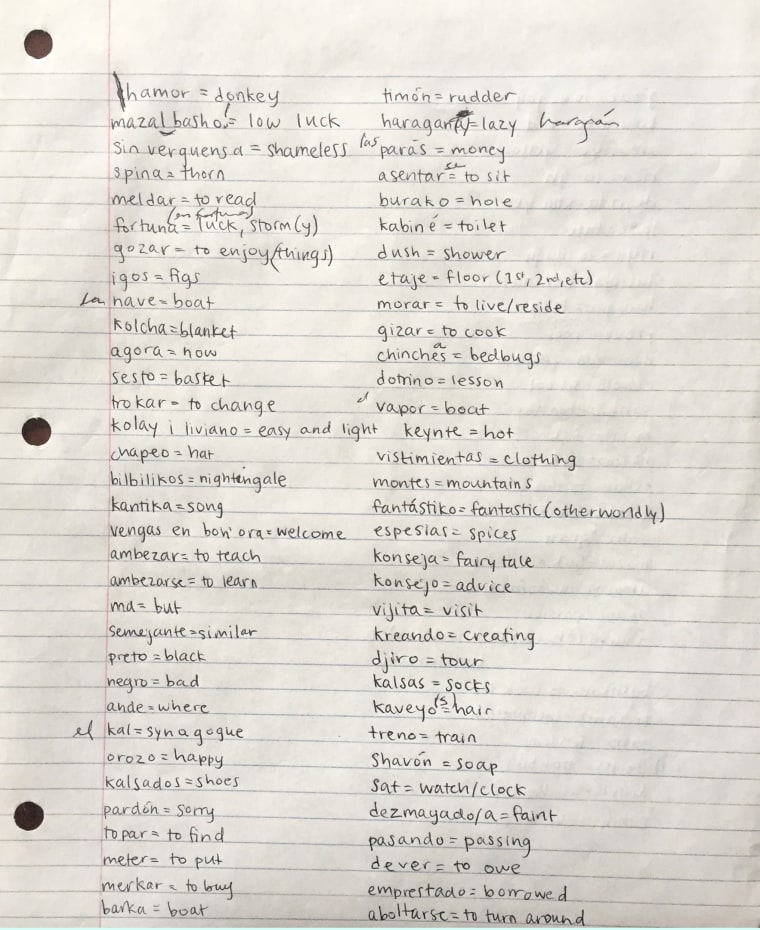 hamor = donkey
mazal basho! = low luck
sin verguensa = shameless
spina = thorn
meldar = to read
(en fortuna)
fortuna = luck, storm(y)
gozar = to enjoy (things)
igos = figs
La nave = boat
kolcha = blanket
agora = now
sesto = basket
trokar = to change
kolay i liviano = easy and light
chapeo = hat
bilbilikos = nightingale
kantika = song
vengas en bon'ora = welcome
ambezar = to teach
ambezarse = to learn
ma = but
semejante = similar
preto = black
negro = bad
ande = where
el kal = synagogue
orozo = happy
kalsados = shoes
pardón = sorry
topar = to find
meter = to put
merkar = to buy
barka = boat
timón = rudder
haragan = lazy haragán
las parás = money
asentarse = to sit
burako = hole
kabiné = toilet
dush = shower
etaje = floor (1st, 2nd, etc)
morar = to live/reside
gizar = to cook
a
chinches = bedbugs
dotrino = lesson
el vapor = boat
keynte = hot
vistimientas = clothing
montes = mountains
fantástiko = fantastic (otherworldly)
espesias = spices
konseja = fairy tale
konsejo = advice
vijita = visit
kreando = creating
djiro = tour
kalsas = socks
kaveyo(s) = hair
treno = train
shavón = soap
sat = watch/clock
dezmayado/a = faint
pasando = passing
dever = to owe
emprestado = borrowed
aboltarse = to turn around